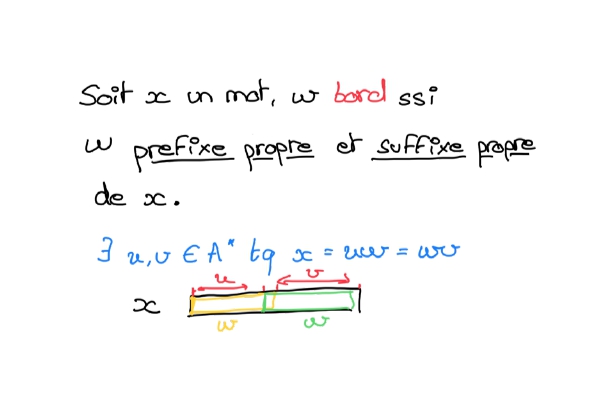 Soit x un mot, w bord ssi
w prefixe propre et suffixe propre
de x.
∃ u,v ∈ A* tq x = uw = wv
u v
x
w w